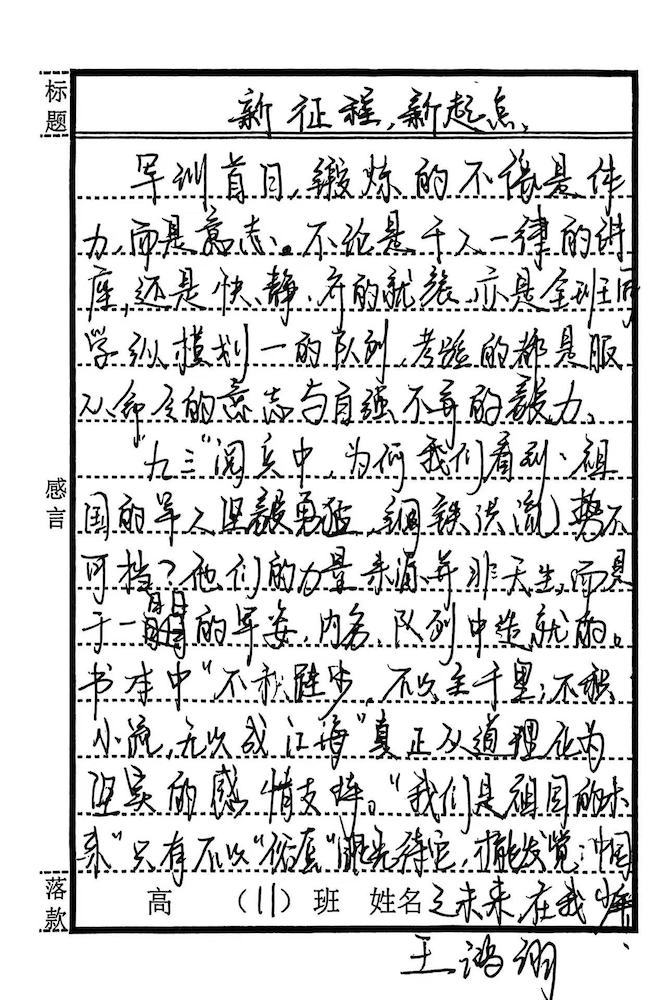 标题
新征程,新起点,
军训首日,锻炼的不仅是体
力,而是意志。不论是千人一律的讲
座,还是快、静、齐的就寝,亦是全班同
学纵横划一的队列,考验的都是服
从命令的意志与自强不弃的毅力、
"九三"阅兵中,为何我们看到、祖
国的军人坚毅勇猛,钢铁洪流,势不
可挡?他们的力量来源、并非天生,而是
于一日日的军姿、内务、队列中造就的。
感言
书本中"不积跬步,不以至千里;不积
小流,无以成江海"真正从道理化为
坚实的感情支撑。"我们是祖国的未
来"只有不以"俗套"眼光待它,才能发觉:中国
落款
高 (11) 班 姓名之未来,在我少年
王鸿翊